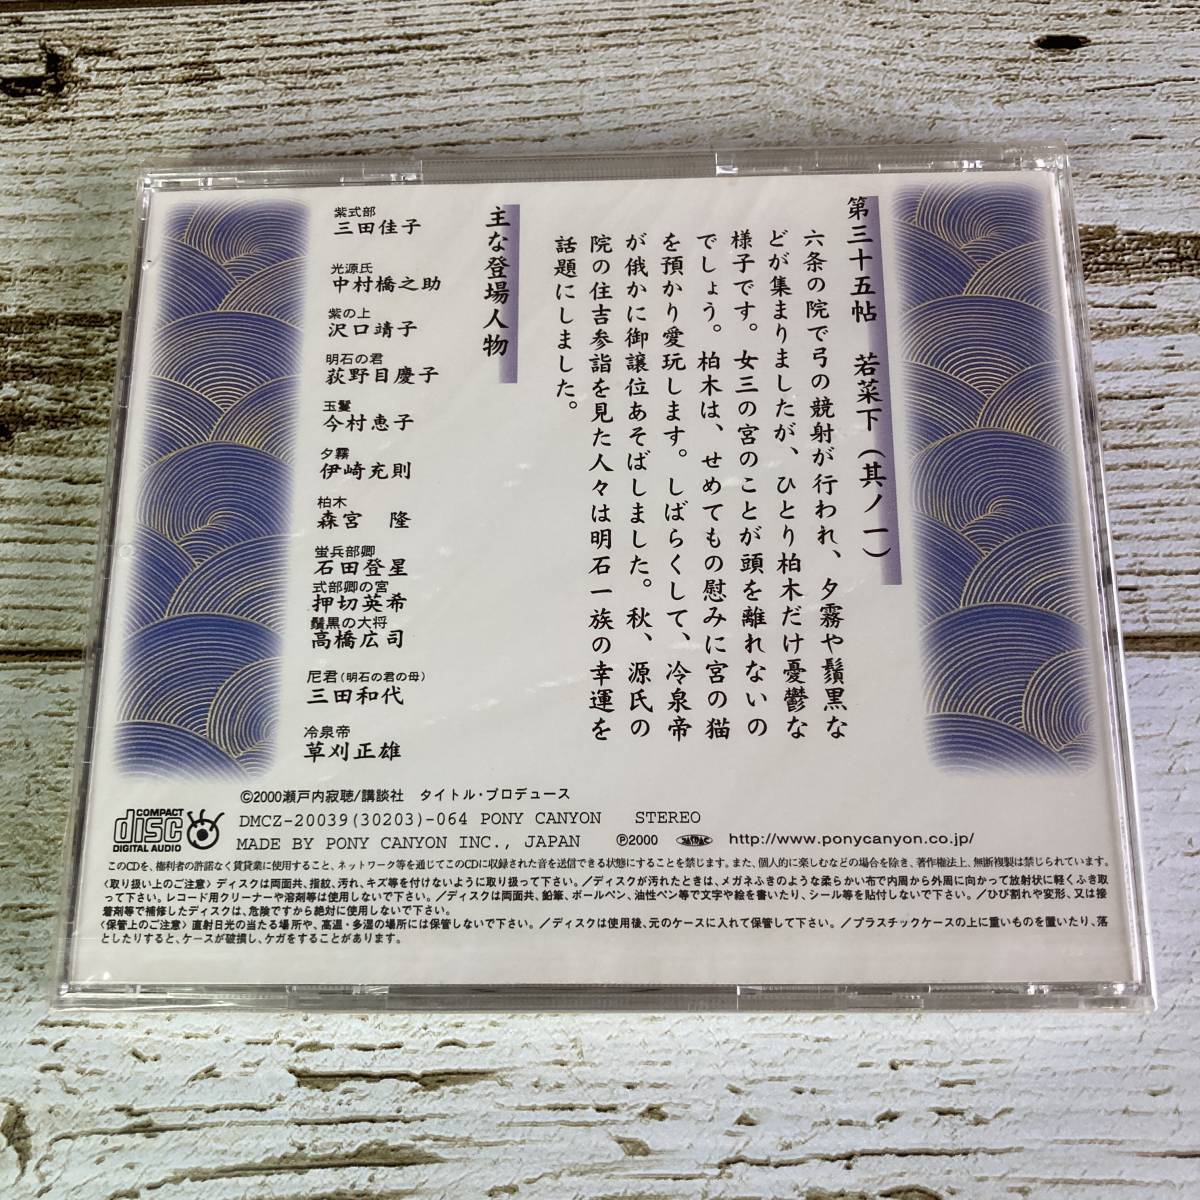 第三十五帖　若菜下（其ノ一）
六条の院で弓の競射が行われ、夕霧や鬚黒な
どが集まりましたが、ひとり柏木だけ憂鬱な
様子です。女三の宮のことが頭を離れないの
でしょう。柏木は、せめてもの慰みに宮の猫
を預かり愛玩します。しばらくして、冷泉帝
が俄かに御譲位あそばしました。秋、源氏の
院の住吉参詣を見た人々は明石一族の幸運を
話題にしました。
主な登場人物
紫式部
三田佳子
光源氏
中村橋之助
紫の上
沢口靖子
明石の君
荻野目慶子
玉鬘
今村恵子
夕霧
伊崎充則
柏木
森宮　隆
蛍兵部卿
石田登星
式部卿の宮
押切英希
鬚黒の大将
高橋広司
尼君（明石の君の母）
三田和代
冷泉帝
草刈正雄
©2000瀬戸内寂聴/講談社　タイトル・プロデュース
COMPACT disc DIGITAL AUDIO
DMCZ-20039(30203)-064 PONY CANYON　STEREO
MADE BY PONY CANYON INC., JAPAN　℗2000　http://www.ponycanyon.co.jp/
このCDを、権利者の許諾なく賃貸業に使用すること、ネットワーク等を通じてこのCDに収録された音を送信できる状態にすることを禁じます。また、個人的に楽しむなどの場合を除き、著作権法上、無断複製は禁じられています。
〈取り扱い上のご注意〉ディスクは両面共、指紋、汚れ、キズ等を付けないように取り扱って下さい。／ディスクが汚れたときは、メガネふきのような柔らかい布で内周から外周に向かって放射状に軽くふき取
って下さい。レコード用クリーナーや溶剤等は使用しないで下さい。／ディスクは両面共、鉛筆、ボールペン、油性ペン等で文字や絵を書いたり、シール等を貼付しないで下さい。／ひび割れや変形、又は接
着剤等で補修したディスクは、危険ですから絶対に使用しないで下さい。
〈保管上のご注意〉直射日光の当たる場所や、高温・多湿の場所には保管しないで下さい。／ディスクは使用後、元のケースに入れて保管して下さい。／プラスチックケースの上に重いものを置いたり、落
としたりすると、ケースが破損し、ケガをすることがあります。